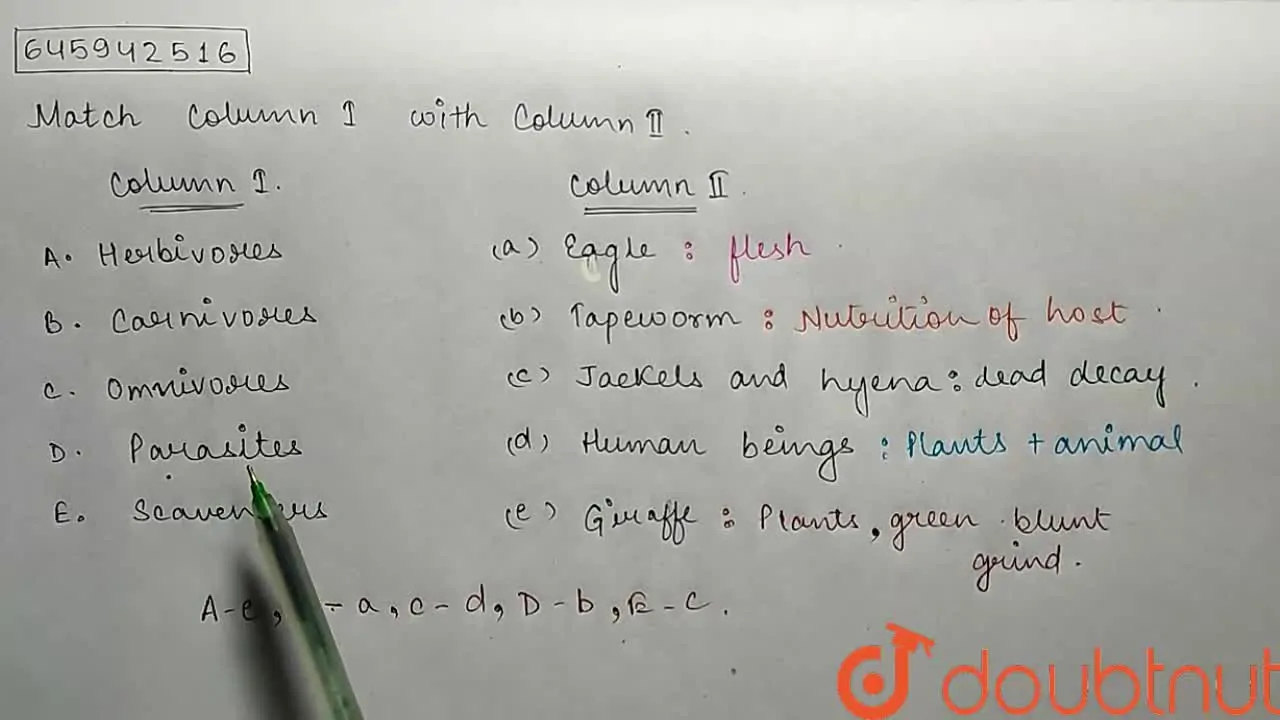 645942516
Match Column I with Column II.
Column I. Column II.
A. Herbivores (a) Eagle : flesh
B. Carnivores (b) Tapeworm : Nutrition of host.
C. Omnivores (c) Jackels and hyena : dead decay.
D. Parasites (d) Human beings : Plants + animal
E. (e) Giraffe : Plants, green blunt
grind.
A-e, - a, C- d, D-b, E-c.
doubtnut